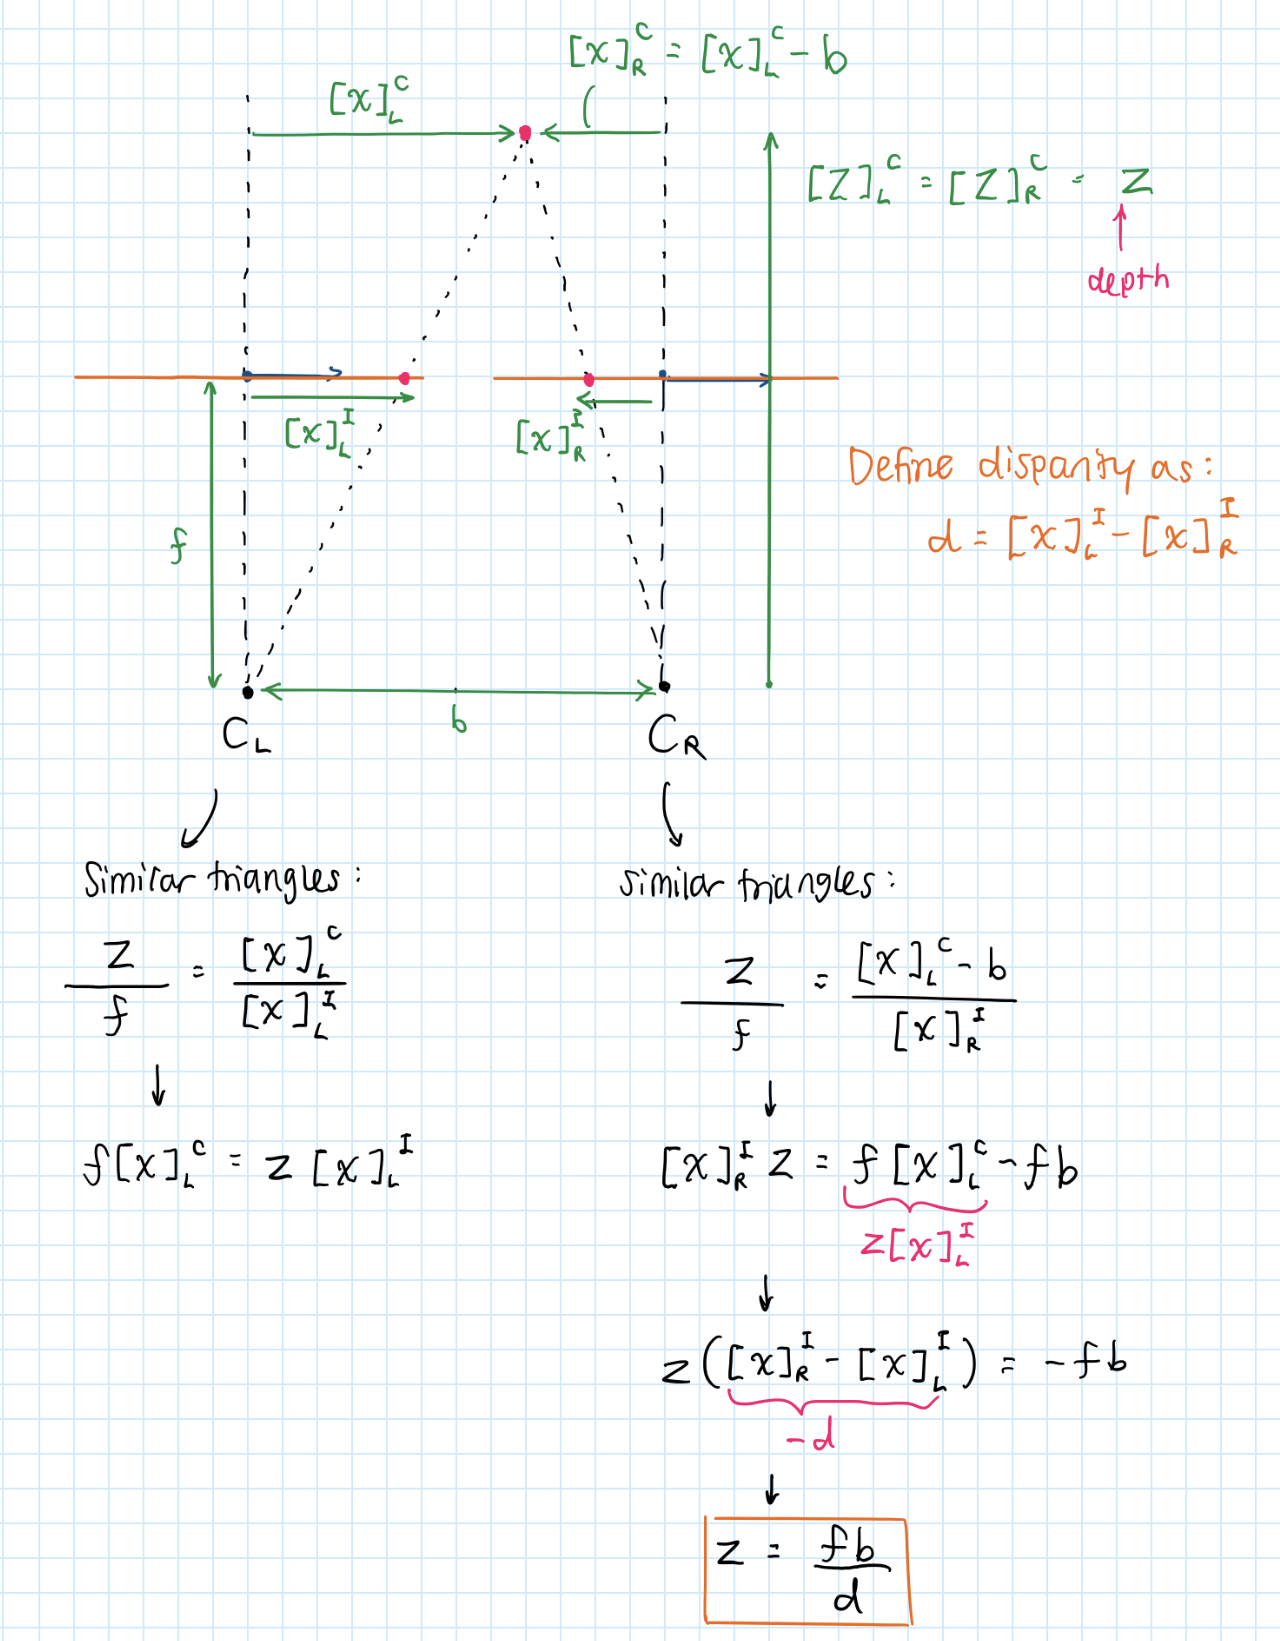 [x]_R^C = [x]_L^C - b
[x]_L^C
[Z]_L^C = [Z]_R^C = Z
depth
[x]_L^I
[x]_R^I
Define disparity as:
d = [x]_L^I - [x]_R^I
f
b
C_L
C_R
Similar triangles:
Z/f = [x]_L^C / [x]_L^I
f[x]_L^C = Z [x]_L^I
similar triangles:
Z/f = ([x]_L^C - b) / [x]_R^I
[x]_R^I Z = f[x]_L^C - fb
Z[x]_L^I
Z([x]_R^I - [x]_L^I) = -fb
-d
Z = fb/d